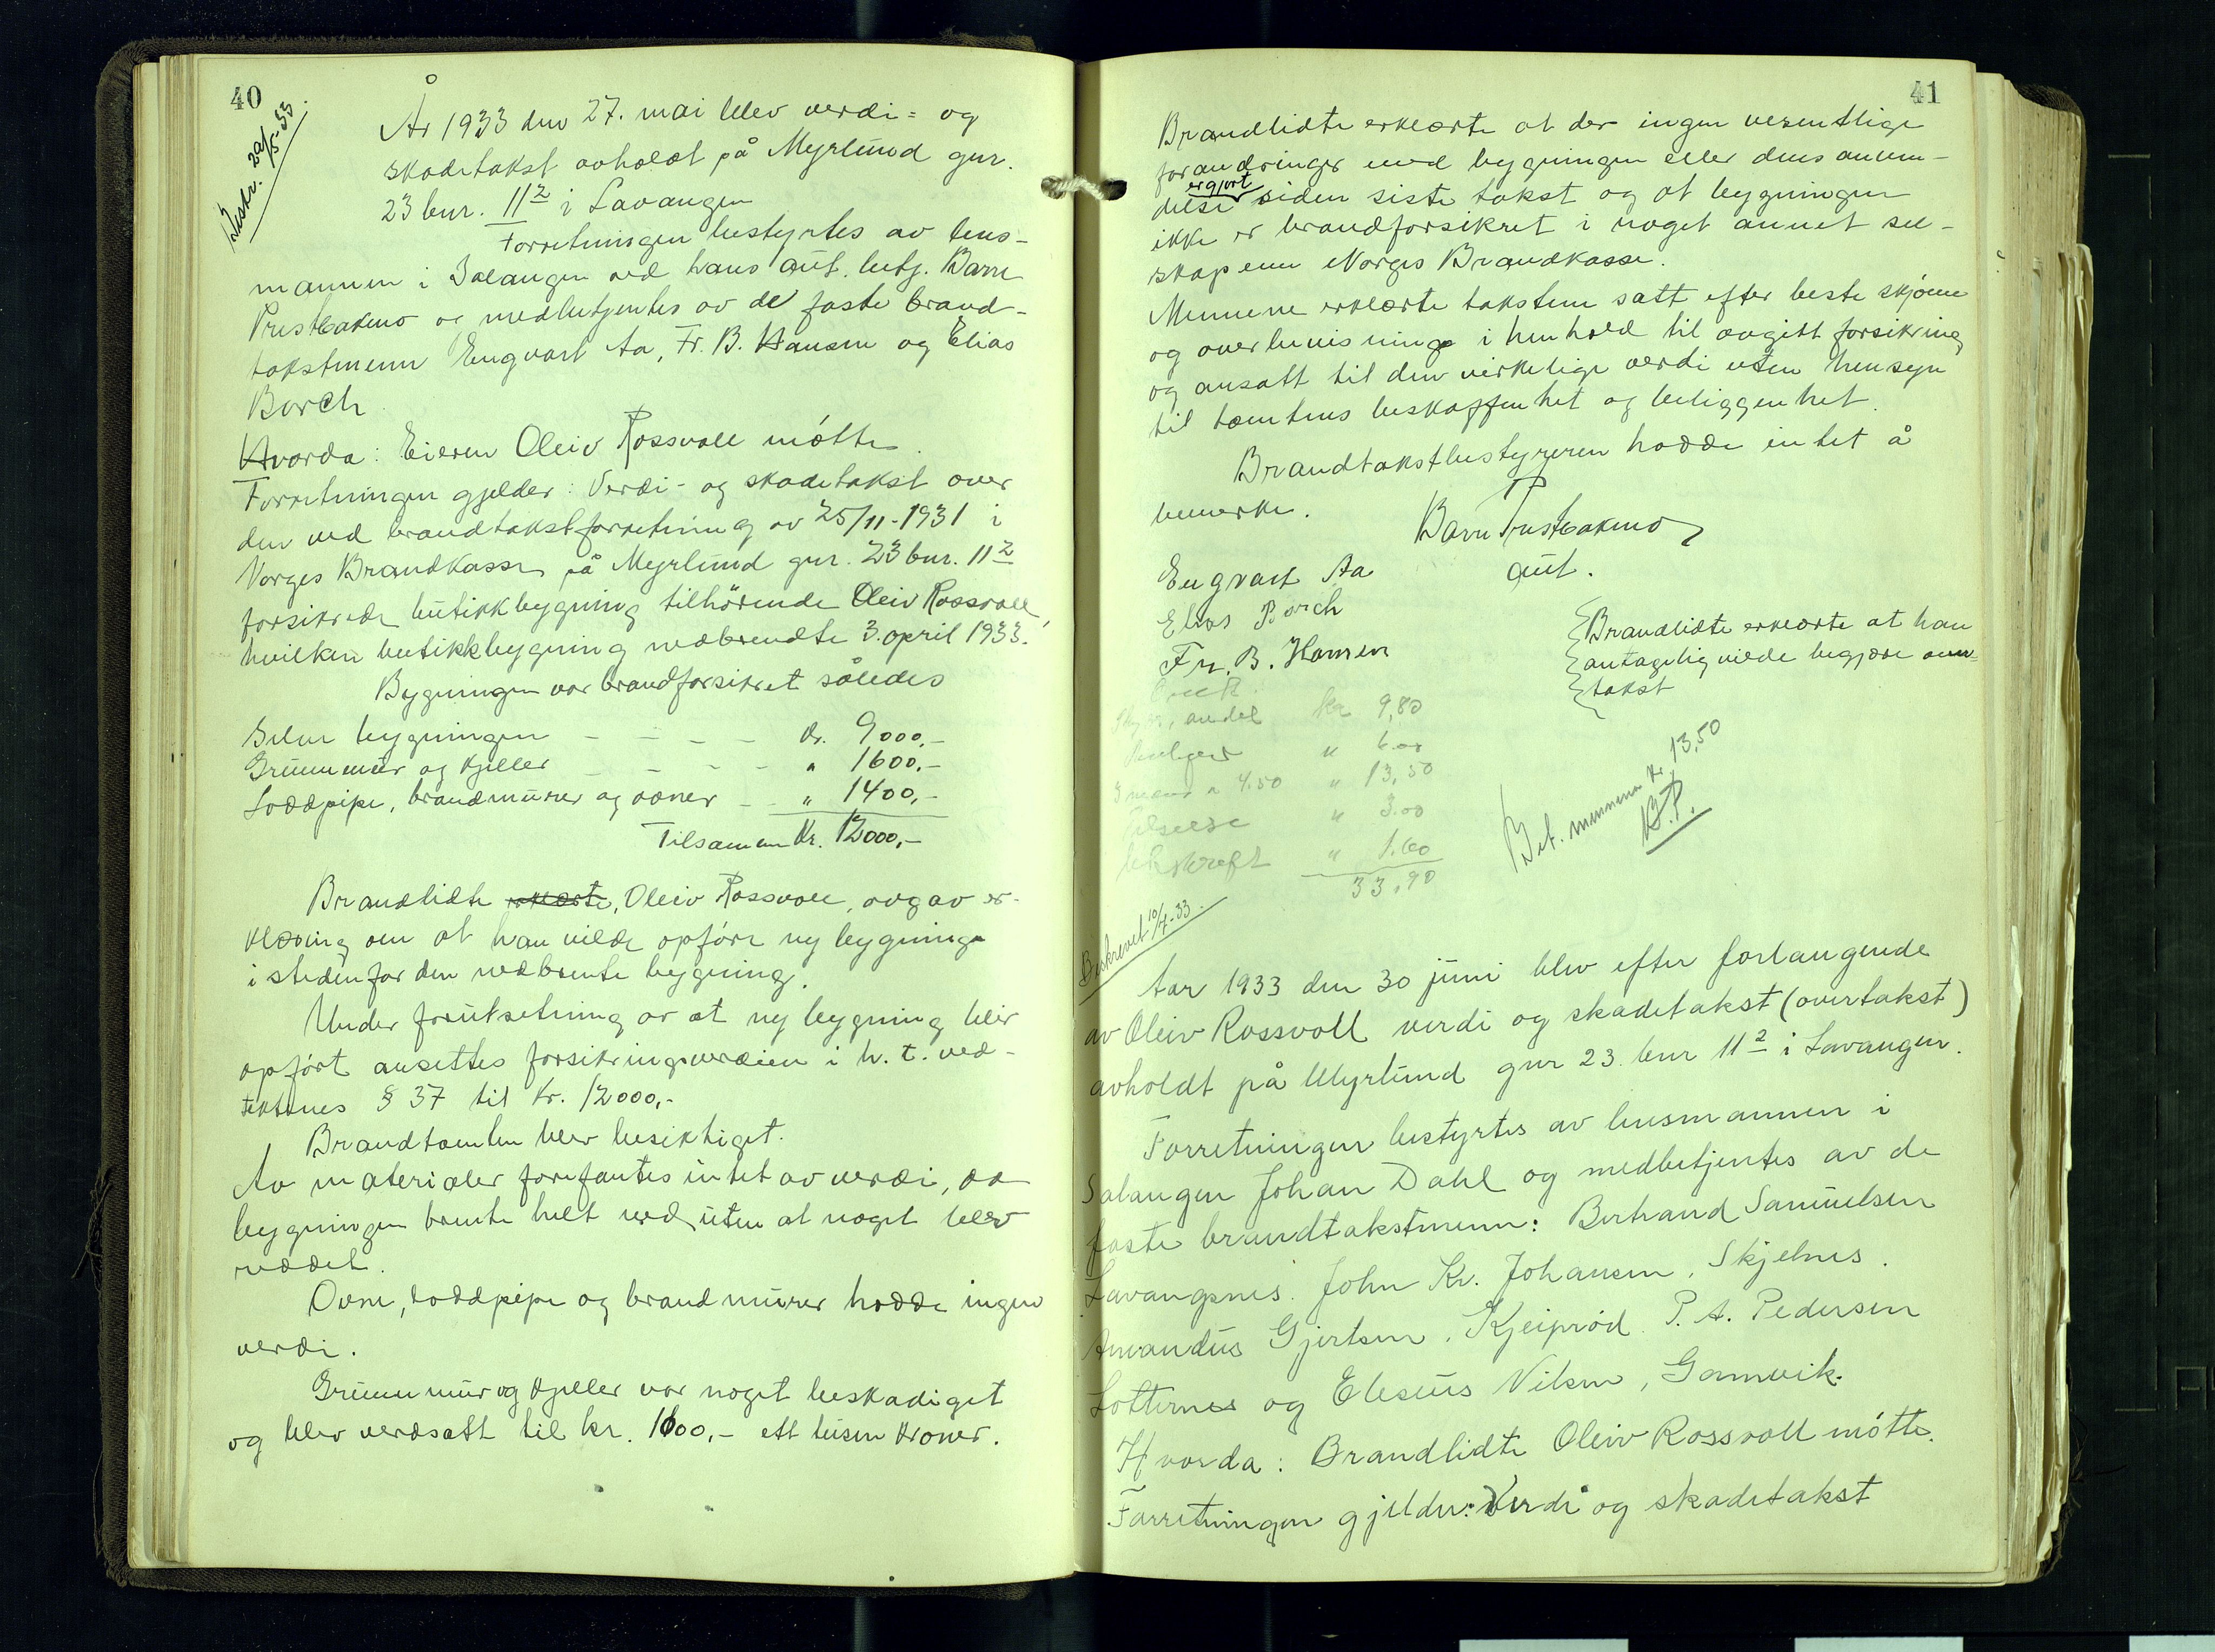 40
Beskr. 29/5-33.
År 1933 den 27. mai blev verdi= og
skadetakst avholdt på Myrlund gnr.
23 bnr. 11² i Lavangen
Forretningen bestyrtes av lens-
mannen i Salangen ved hans aut. betj. Barn
Prestbakmo og medbetjentes av de faste brand-
takstmenn Engvart Aa, Fr. B. Hansen og Elias
Borch
Hvorda: Eieren Oleiv Rossvoll møtte.
Forretningen gjelder: Verdi- og skadetakst over
den ved brandtakstforretning av 25/11-1931 i
Norges Brandkasse på Myrlund gnr. 23 bnr. 11²
forsikrede butikkbygning tilhörende Oleiv Rossvoll,
hvilken butikkbygning nedbrendte 3. april 1933.
Bygningen var brandforsikret således
Selve bygningen - - - - kr. 9000,-
Grunnmur og kjeller - - - - " 1600,-
Loddpipe, brandmurer og ovner - - " 1400,-
Tilsammen kr. 12000,-
Brandlidte erklærte, Oleiv Rossvoll, avgav er-
klæring om at han vilde opføre ny bygning
i steden for den nedbrente bygning.
Under forutsetning av at ny bygning blir
opført ansettes forsikringsverdien i h. t. ved-
tektenes § 37 til kr. 12000,-
Brandtomten blev besiktiget.
Av materialer forefantes intet av verdi, da
bygningen brente helt ned uten at noget blev
reddet.
Ovne, loddpipe og brandmurer hadde ingen
verdi.
Grunnmur og kjeller var noget beskadiget
og blev verdsatt til kr. 1000,- ett tusen kroner.
41
Brandlidte erklærte at der ingen vesentlige
forandringer med bygningen eller dens anven-
er gjort
delse siden siste takst og at bygningen
ikke er brandforsikret i noget annet sel-
skap enn Norges Brandkasse.
Mennene erklærte taksten satt efter beste skjønn
og overbevisning i henhold til avgitt forsikring
og ansatt til den virkelige verdi uten hensyn
til tomtens beskaffenhet og beliggenhet.
Brandtakstbestyreren hadde intet å
bemerke.
Barn Prestbakmo
aut.
Engvart Aa
Elias Borch
Fr. B. Hansen
Brandlidte erklærte at han
antagelig vilde begjære over-
takst
Skyss, andel kr 9,80
" 6.00
3 menn a 4.50 " 13,50
" 3.00
Utskrift " 1.60
33,90
Bet. mennene kr 13,50
B.P.
Beskrevet 10/7-33.
Aar 1933 den 30 juni blev efter forlangende
av Oleiv Rossvoll verdi og skadetakst (overtakst)
avholdt på Myrlund gnr 23 bnr 11² i Lavangen.
Forretningen bestyrtes av lensmannen i
Salangen Johan Dahl og medbetjentes av de
faste brandtakstmenn: Berhard Samuelsen
Lavangsnes. John Kr. Johansen, Skjelnes.
Amandus Gjertsen, Kjeiprød P. A. Pedersen
Lotternes og Elesius Nilsen, Gamvik.
Hvorda: Brandlidte Oleiv Rossvoll møtte.
Forretningen gjelder: Verdi og skadetakst